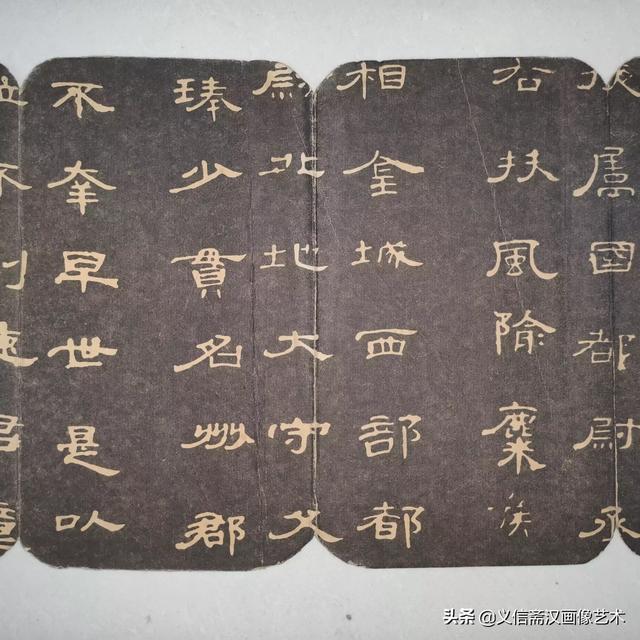 掖屬國都尉丞
右扶風隃麋侯
相金城西部都
尉北地大守父
琫少貫名州郡
不幸早世是以
位不君童
头条 @义信斋汉画像艺术